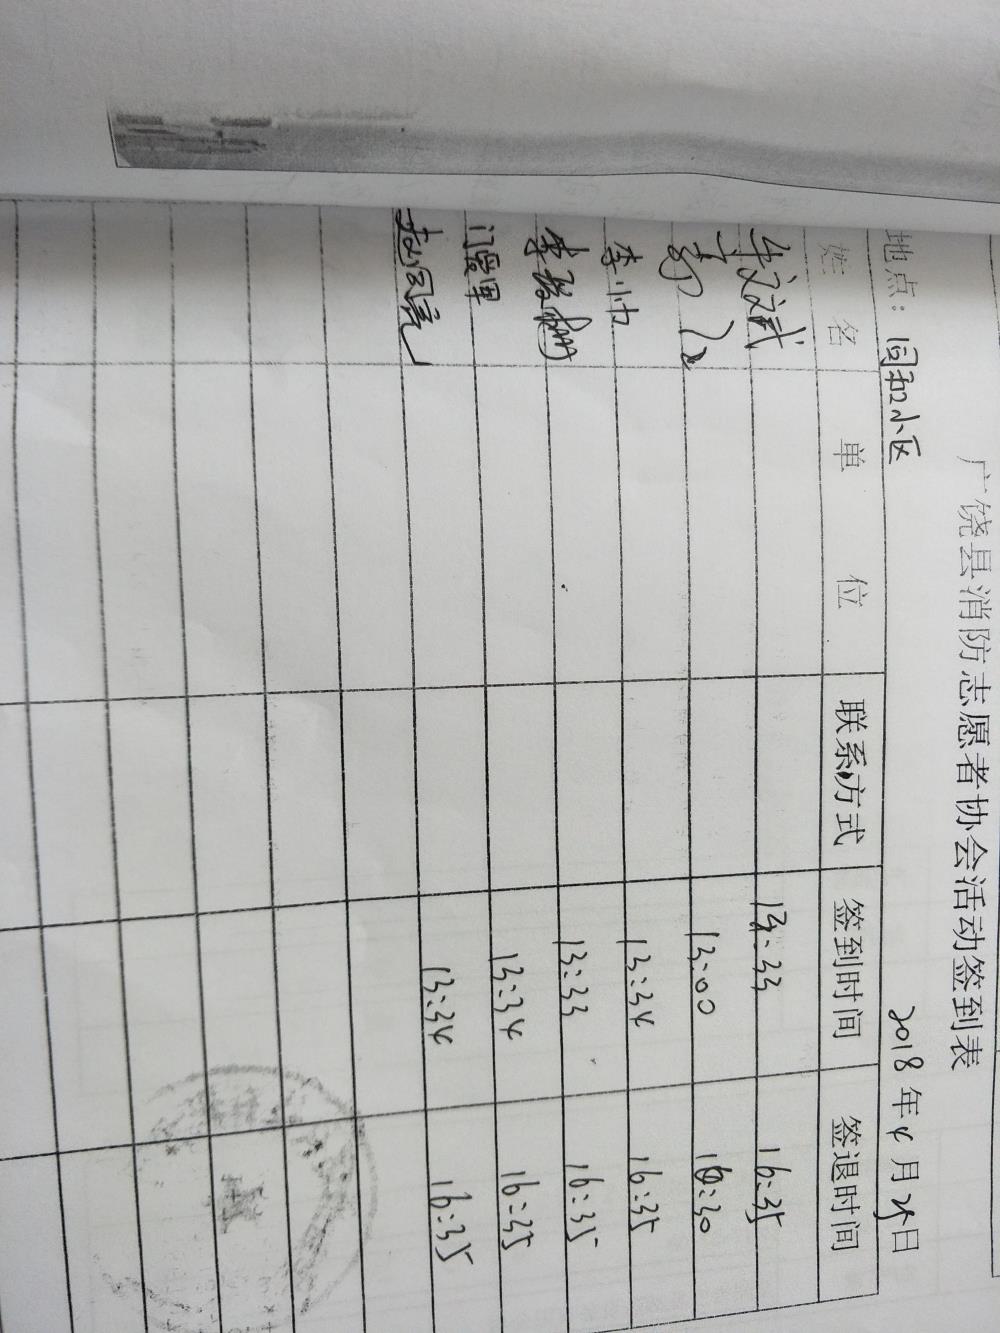 广饶县消防志愿者协会活动签到表
地点：同和小区 2018年4月25日
姓名 单位 联系方式 签到时间 签退时间
牟文斌 13:33 16:35
13:00 16:30
李小巾 13:34 16:35
13:33 16:35
门爱军 13:34 16:35
13:34 16:35